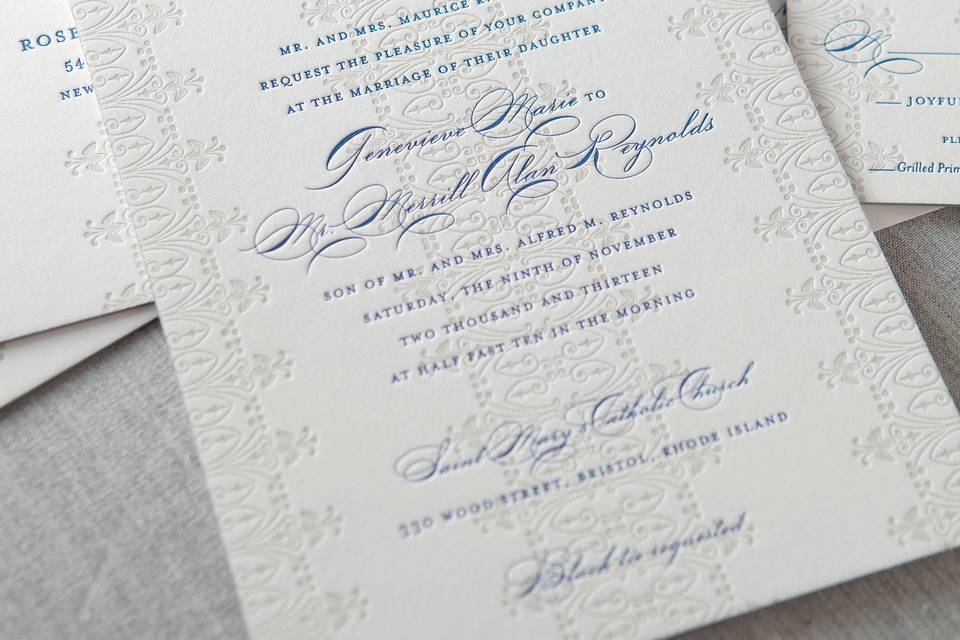 ROSE
54
NEW
MR. AND MRS. MAURICE
REQUEST THE PLEASURE OF YOUR COMPANY
AT THE MARRIAGE OF THEIR DAUGHTER
Genevieve Marie TO
Mr. Merrill Alan Reynolds
SON OF MR. AND MRS. ALFRED M. REYNOLDS
SATURDAY, THE NINTH OF NOVEMBER
TWO THOUSAND AND THIRTEEN
AT HALF PAST TEN IN THE MORNING
Saint Mary's Catholic Church
330 WOOD STREET, BRISTOL, RHODE ISLAND
Black tie requested
M
JOYFU
PL
Grilled Prim